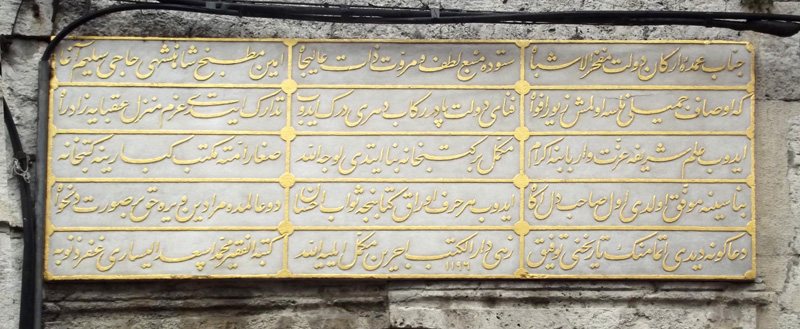 جناب عمدۀ ارکان دولت مفخر الاشباه ستوده منبع لطف و مروت ذات عالیجاه امین مطبخ شاهنشهی حاجی سلیم آغا
که اوصاف جمیلی ناسه اولمش زیور افواه فنای دولت پا در رکاب دهری درک ایدوب تدارک ایتدی عزم منزل عقبایه زاد راه
ایدوب علم شریفه عزت و اربابنه اکرام مکمل بر کتبخانه بنا ایتدی لوجه الله صغار امته مکتب کبارینه کتبخانه
بناسینه موفق اولدی اول صاحب دل آکاه ایدوب هر حرف اوراق کتابنجه ثواب احسان دو عالمده مرادین ویره حق بر صورت دلخواه
دعاکونه دیدی اتمامنک تاریخنی توفیق زهی دار الکتب اجرین مکمل ایلیه الله ١١٩٦ کتبه الفقیر محمد اسعد الیساری غفر ذنوبه